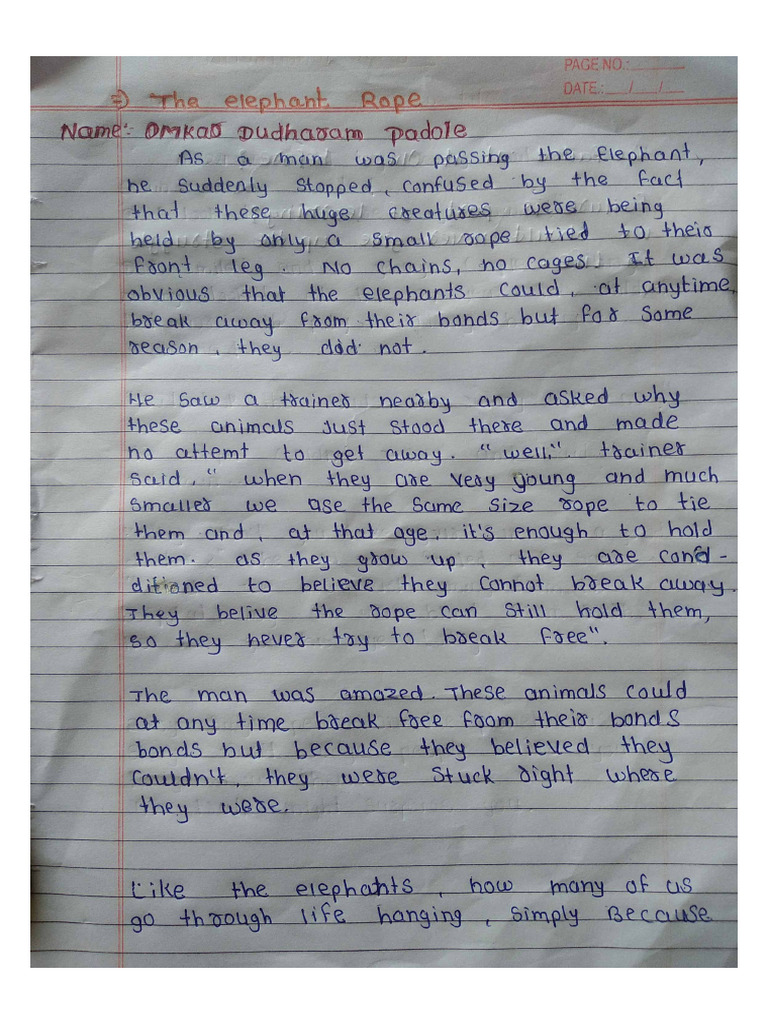 PAGE NO.:
DATE.: / /
⇒ The elephant Rope
Name:- Omkar Dudharam Padole
As a man was passing the Elephant,
he suddenly stopped, confused by the fact
that these huge creatures were being
held by only a small rope tied to their
front leg. No chains, no cages. It was
obvious that the elephants could, at anytime,
break away from their bonds but for some
reason, they did not.
He saw a trainer nearby and asked why
these animals just stood there and made
no attemt to get away. "well,". trainer
said, "when they are very young and much
smaller we use the same size rope to tie
them and, at that age, it's enough to hold
them. as they grow up, they are con-
ditioned to believe they cannot break away.
They belive the rope can still hold them,
so they never try to break free".
The man was amazed. These animals could
at any time break free from their bonds
bonds but because they believed they
couldn't, they were stuck right where
they were.
Like the elephants, how many of us
go through life hanging, simply Because